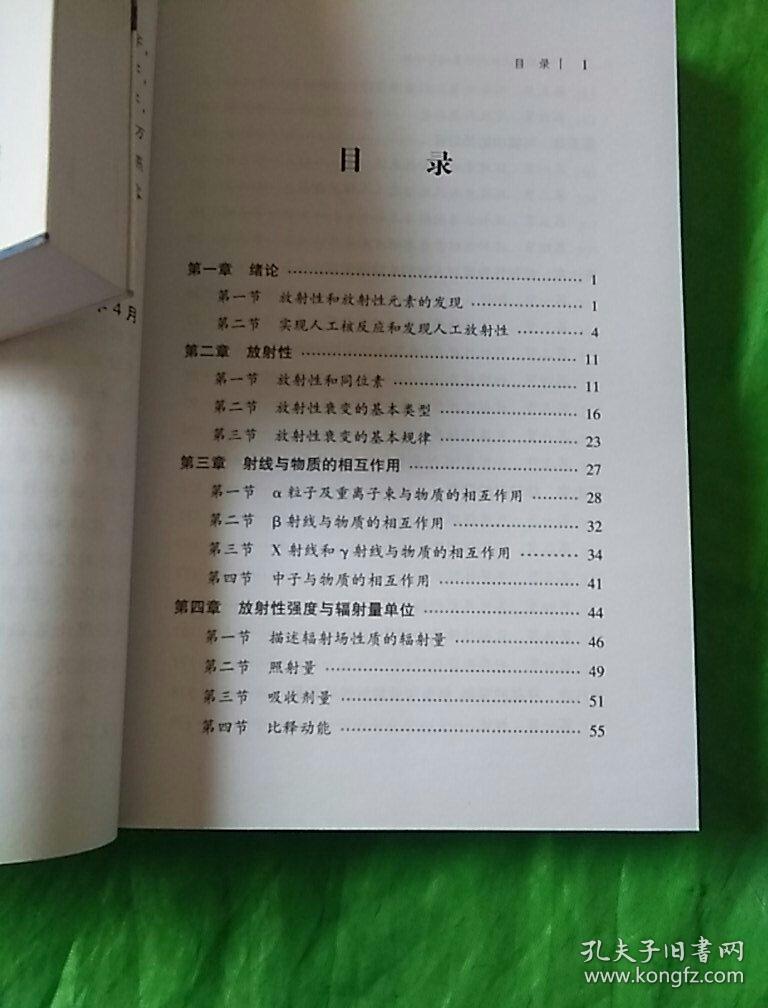 目 录 | 1
目 录
第一章 绪论 …… 1
第一节 放射性和放射性元素的发现 …… 1
第二节 实现人工核反应和发现人工放射性 …… 4
第二章 放射性 …… 11
第一节 放射性和同位素 …… 11
第二节 放射性衰变的基本类型 …… 16
第三节 放射性衰变的基本规律 …… 23
第三章 射线与物质的相互作用 …… 27
第一节 α粒子及重离子束与物质的相互作用 …… 28
第二节 β射线与物质的相互作用 …… 32
第三节 X射线和γ射线与物质的相互作用 …… 34
第四节 中子与物质的相互作用 …… 41
第四章 放射性强度与辐射量单位 …… 44
第一节 描述辐射场性质的辐射量 …… 46
第二节 照射量 …… 49
第三节 吸收剂量 …… 51
第四节 比释动能 …… 55
4月
孔夫子旧书网
www.kongfz.com